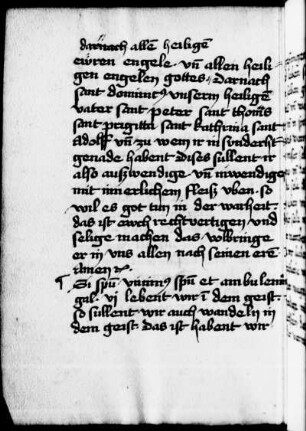 darnach allē heiligē
ewren engele · vn̄ allen heili
gen engelen gottes · Darnach
sant dominic9 unserm heiligē
vater sant peter sant thom̄s
sant prigitta sant katherina sant
Adolff vn̄ zu wem ir in sunderst
genade habent Dises süllent ir
also ausswendige vn̄ inwendige
mit innerlichem fleiss vben · so
wil es got tun in der warheit ·
das ist ewch rechtvertigen und
selige machen das volbringe
er in uns allen nach seinen erē
Amen
Si spū viuim9 spū et ambulem9
gal · vj lebent wir ī dem geist ·
so süllent wir auch wandeln in
dem geist · Das ist habent wir